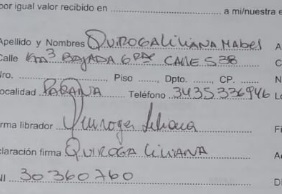 por igual valor recibido en a mi/nuestra e
Apellido y Nombres QUIROGA LILIANA MABEL A
Calle Km 3 BAJADA 6 CALLE 538 C
Nro. Piso Dpto. CP. N
Localidad PARANA Teléfono 3435336946 Lo
Firma librador Quiroga Liliana Fi
Aclaración firma QUIROGA LILIANA A
NI 30360760 D